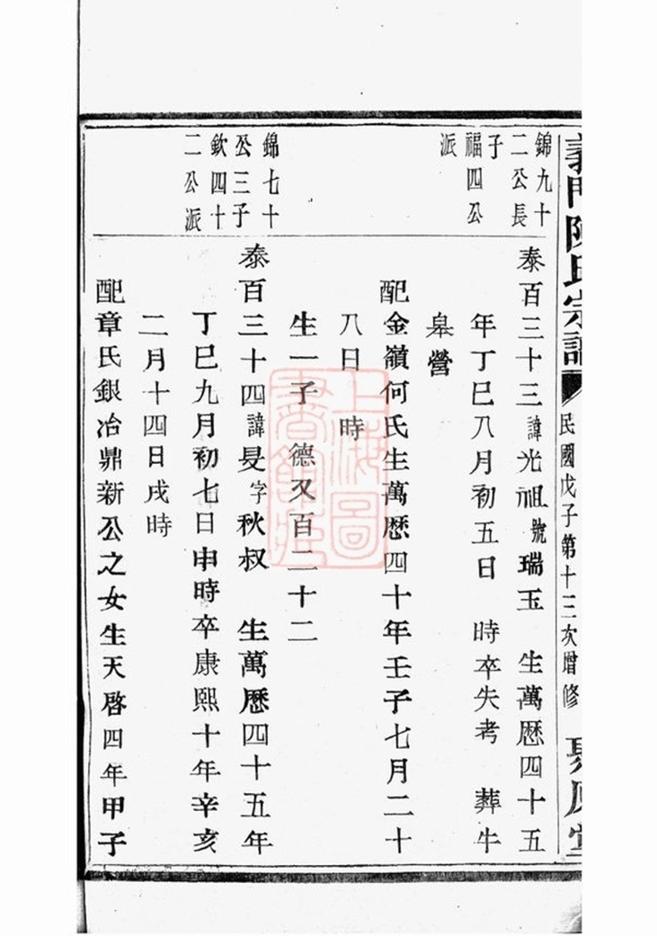 義門陳氏宗譜
民國戊子第十三次增修
聚原堂
錦九十
二公長
子
福四公
派
泰百三十三諱光祖號瑞玉 生萬歷四十五
年丁巳八月初五日 時卒失考 葬牛
皋營
配金嶺何氏生萬歷四十年壬子七月二十
八日 時
生一子 德又百二十二
錦七十
公三子
欽四十
二公派
泰百三十四諱旻字秋叔 生萬歷四十五年
丁巳九月初七日申時卒康熙十年辛亥
二月十四日戌時
配章氏銀冶鼎新公之女生天啓四年甲子
上海圖
書館藏